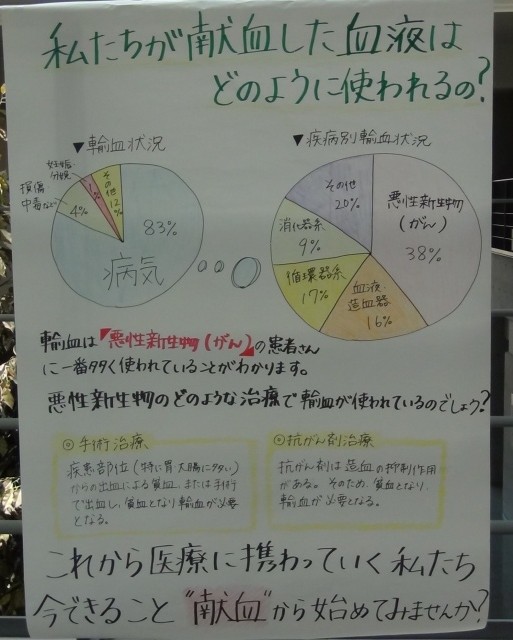 私たちが献血した血液は
どのように使われるの?
▼輸血状況
▼疾病別輸血状況
妊娠・分娩
1%
その他
12%
損傷
中毒など
4%
83%
病気
その他
20%
悪性新生物
(がん)
38%
消化器系
9%
循環器系
17%
血液・
造血器
16%
輸血は『悪性新生物(がん)』の患者さん
に一番多く使われていることがわかります。
悪性新生物のどのような治療で輸血が使われているのでしょう?
◎手術治療
疾患部位(特に胃・大腸に多い)
からの出血による貧血、または手術
で出血し、貧血となり輸血が必要
となる。
◎抗がん剤治療
抗がん剤は造血の抑制作用
がある。そのため、貧血となり、
輸血が必要となる。
これから医療に携わっていく私たち
今できること"献血"から始めてみませんか?